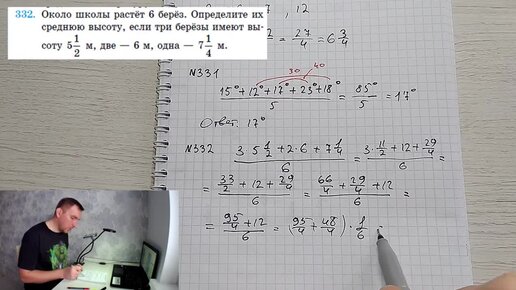 332. Около школы растёт 6 берёз. Определите их
среднюю высоту, если три берёзы имеют вы-
соту 5 1/2 м, две — 6 м, одна — 7 1/4 м.
7, 12
= 27/4 = 6 3/4
N331
30 40
(15° + 12° + 17° + 23° + 18°)/5 = 85°/5 = 17°
Ответ: 17°
N332 (3·5 1/2 + 2·6 + 7 1/4)/6 = (3·11/2 + 12 + 29/4)/6 =
= (33/2 + 12 + 29/4)/6 = (66/4 + 29/4 + 12)/6 =
= (95/4 + 12)/6 = (95/4 + 48/4) · 1/6 =